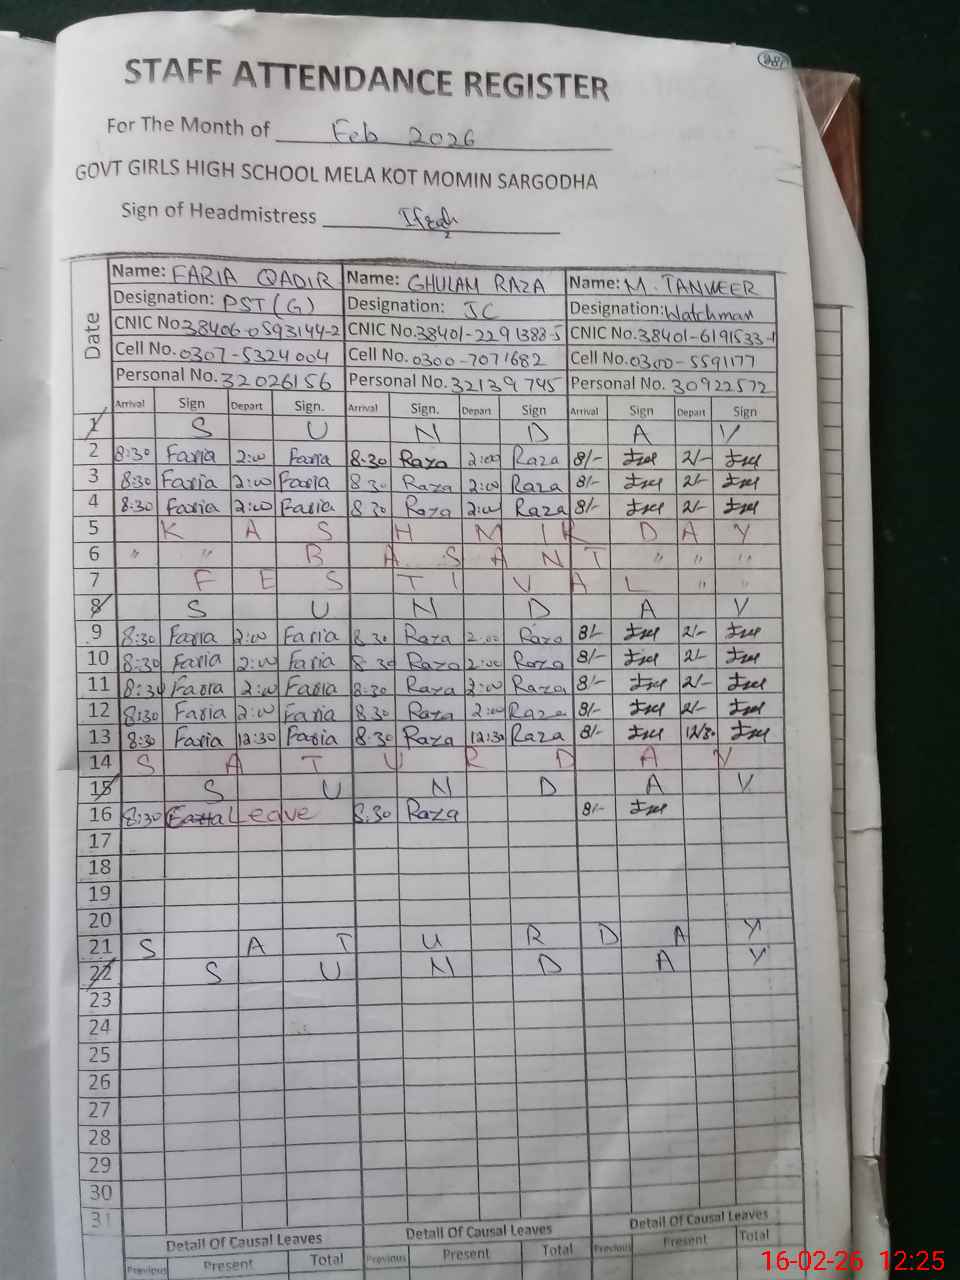 STAFF ATTENDANCE REGISTER
For The Month of Feb 2026
GOVT GIRLS HIGH SCHOOL MELA KOT MOMIN SARGODHA
Sign of Headmistress Ifrah
Date
Name: FARIA QADIR Name: GHULAM RAZA Name: M. TANVEER
Designation: PST (G) Designation: JC Designation: Watchman
CNIC No.38406-0593144-2 CNIC No.38401-2291388-5 CNIC No.38401-6191533-1
Cell No.0307-5324004 Cell No.0300-7071682 Cell No.0300-5591177
Personal No.32026156 Personal No.32139745 Personal No.30922572
Arrival Sign Depart Sign. Arrival Sign. Depart Sign Arrival Sign Depart Sign
1 S U N D A Y
2 8:30 Faria 2:00 Faria 8:30 Raza 2:00 Raza 8/- 2/-
3 8:30 Faria 2:00 Faria 8 30 Raza 2:00 Raza 8/- 2/-
4 8:30 Faria 2:00 Faria 8 30 Raza 2:00 Raza 8/- 2/-
5 K A S H M I R D A Y
6 " " B A S A N T " " "
7 F E S T I V A L " "
8 S U N D A Y
9 8:30 Faria 2:00 Faria 8 30 Raza 2:00 Raza 8/- 2/-
10 8:30 Faria 2:00 Faria 8 30 Raza 2:00 Raza 8/- 2/-
11 8:30 Faria 2:00 Faria 8:30 Raza 2:00 Raza 8/- 2/-
12 8:30 Faria 2:00 Faria 8.30 Raza 2:00 Raza 8/- 2/-
13 8:30 Faria 12:30 Faria 8:30 Raza 12:30 Raza 8/- 12/30
14 S A T U R D A Y
15 S U N D A Y
16 8:30 Faria Leave 8.30 Raza 8/-
17
18
19
20
21 S A T U R D A Y
22 S U N D A Y
23
24
25
26
27
28
29
30
31
Detail Of Causal Leaves Detail Of Causal Leaves Detail Of Causal Leaves
Previous Present Total Previous Present Total Previous Present Total
16-02-26 12:25